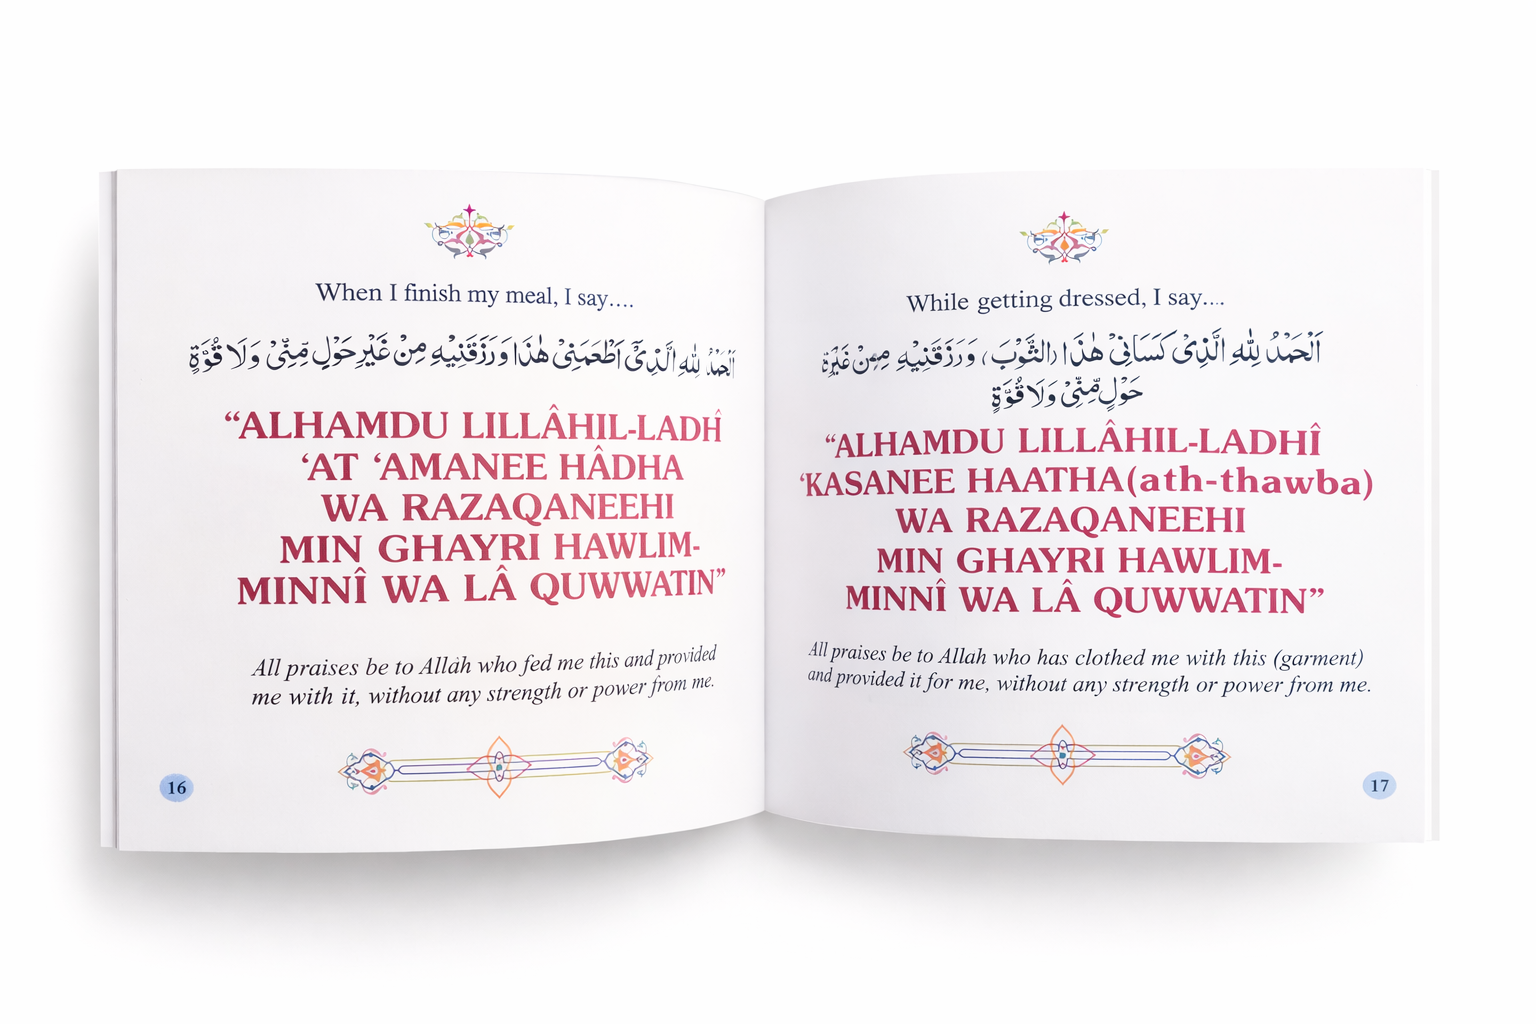 When I finish my meal, I say....
اَلْحَمْدُ لِلّٰهِ الَّذِىْٓ اَطْعَمَنِىْ هٰذَا وَرَزَقَنِيْهِ مِنْ غَيْرِ حَوْلٍ مِّنِّىْ وَلَا قُوَّةٍ
“ALHAMDU LILLÂHIL-LADHÎ
‘AT ‘AMANEE HÂDHA
WA RAZAQANEEHI
MIN GHAYRI HAWLIM-
MINNÎ WA LÂ QUWWATIN”
All praises be to Allâh who fed me this and provided
me with it, without any strength or power from me.
16
While getting dressed, I say....
اَلْحَمْدُ لِلّٰهِ الَّذِىْ كَسَانِىْ هٰذَا (الثَّوْبَ) وَرَزَقَنِيْهِ
حَوْلٍ مِّنِّىْ وَلَا قُوَّةٍ
“ALHAMDU LILLÂHIL-LADHÎ
‘KASANEE HAATHA(ath-thawba)
WA RAZAQANEEHI
MIN GHAYRI HAWLIM-
MINNÎ WA LÂ QUWWATIN”
All praises be to Allah who has clothed me with this (garment)
and provided it for me, without any strength or power from me.
17